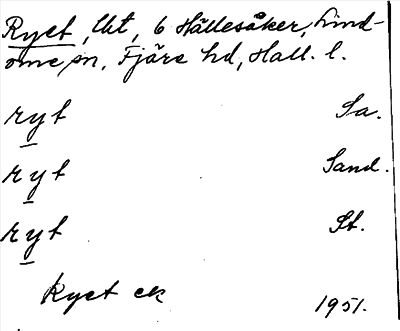 Ryet, lht, 6 Hällesåker, Lind-
ome sn, Fjäre hd, Hall. l.
ryt Sa.
ryt Sand.
ryt St.
Ryet ek 1951.